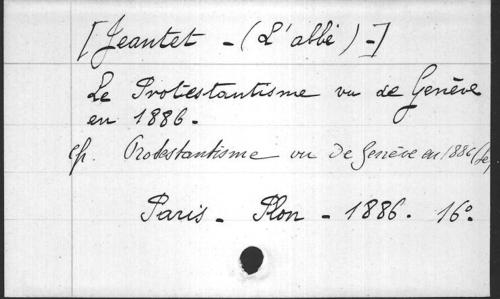 [Jeantet - (L'abbé) -]
Le Protestantisme vu de Genève
en 1886 -
cf. Protestantisme vu de Genève en 1886 (Le)
Paris - Plon - 1886. 16°.